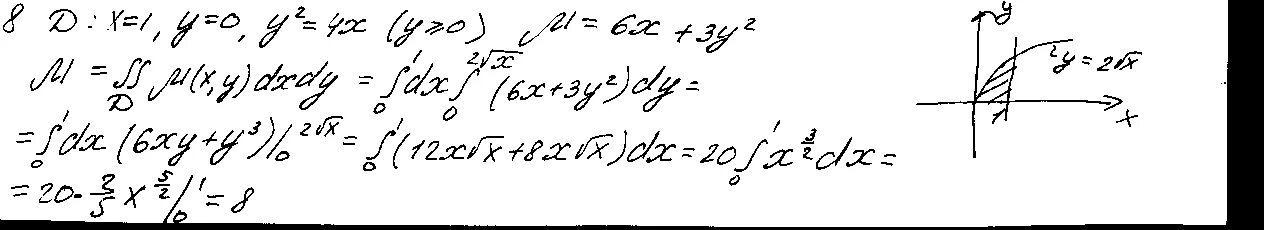 8 D: x=1, y=0, y²=4x (y≥0) μ = 6x + 3y²
M = ∬_D μ(x,y)dxdy = ∫₀¹dx∫₀^{2√x}(6x+3y²)dy=
=∫₀¹dx (6xy+y³)|₀^{2√x}=∫₀¹(12x√x+8x√x)dx=20∫₀¹x^{3/2}dx=
=20·2/5 x^{5/2}|₀¹=8
y
y=2√x
1
x